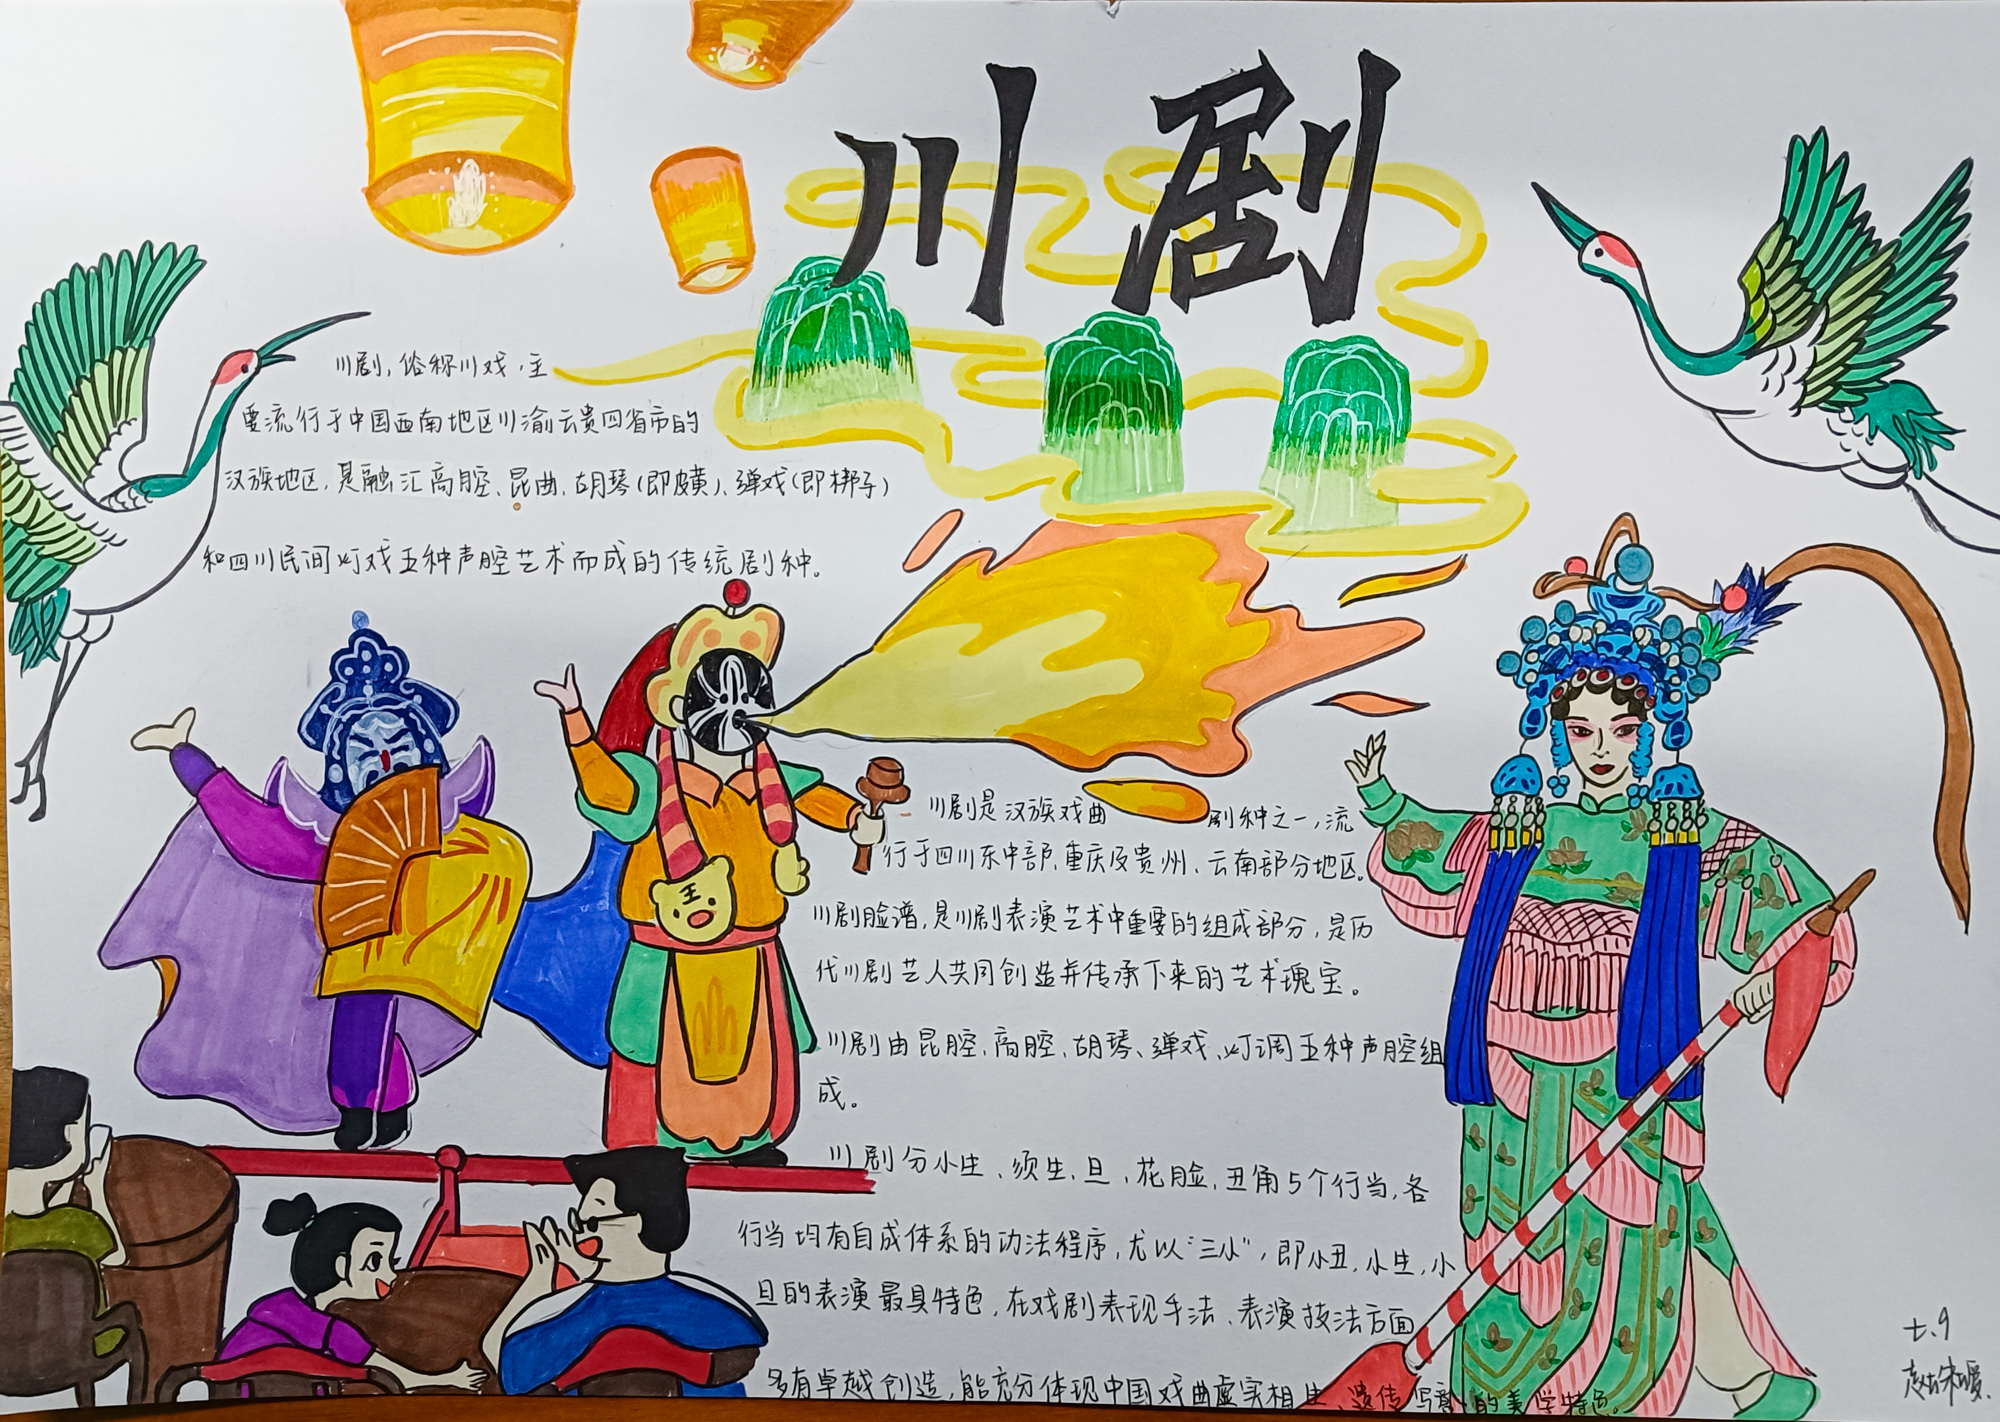 川剧
川剧，俗称川戏，主
要流行于中国西南地区川渝云贵四省市的
汉族地区，是融汇高腔、昆曲、胡琴(即皮黄)、弹戏(即梆子)
和四川民间灯戏五种声腔艺术而成的传统剧种。
川剧是汉族戏曲剧种之一，流
行于四川东中部、重庆及贵州、云南部分地区。
川剧脸谱，是川剧表演艺术中重要的组成部分，是历
代川剧艺人共同创造并传承下来的艺术瑰宝。
川剧由昆腔、高腔、胡琴、弹戏、灯调五种声腔组
成。
川剧分小生、须生、旦、花脸、丑角5个行当，各
行当均有自成体系的功法程序，尤以“三小”，即小丑，小生，小
旦的表演最具特色，在戏剧表现手法、表演技法方面
多有卓越创造，能充分体现中国戏曲虚实相生、遗传写意的美学特色。
七、9
王